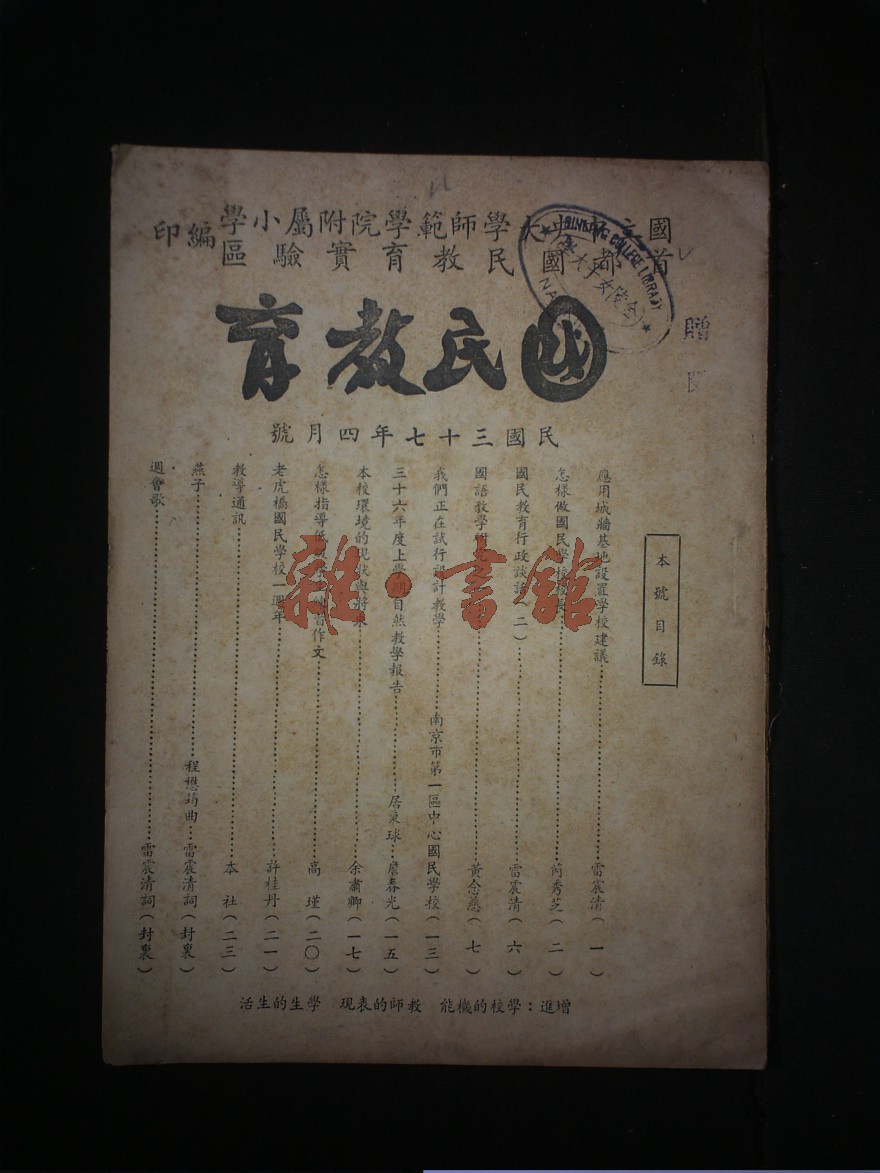 國立中央大學師範學院附屬小學編印
首都國民教育實驗區
國民教育
民國三十七年四月號
贈
GINLING COLLEGE LIBRARY
本號目錄
應用城牆基地設置學校建議 雷震清(一)
怎樣做國民學校校長 芮秀芝(二)
國民教育行政談話(二) 雷震清(六)
國語教學 黃念慈(七)
我們正在試行設計教學 南京市第一區中心國民學校(一三)
三十六年度上學期自然教學報告 居秉球 詹春光(一五)
本校環境的現狀與將來 余肅卿(一七)
怎樣指導低 作文 高瑾(二〇)
老虎橋國民學校一週年 許桂丹(二一)
教導通訊 本社(二三)
燕子 程懋筠曲 雷震清詞(封裏)
週會歌 雷震清詞(封裏)
增進:學校的機能 教師的表現 學生的生活
雜·書館